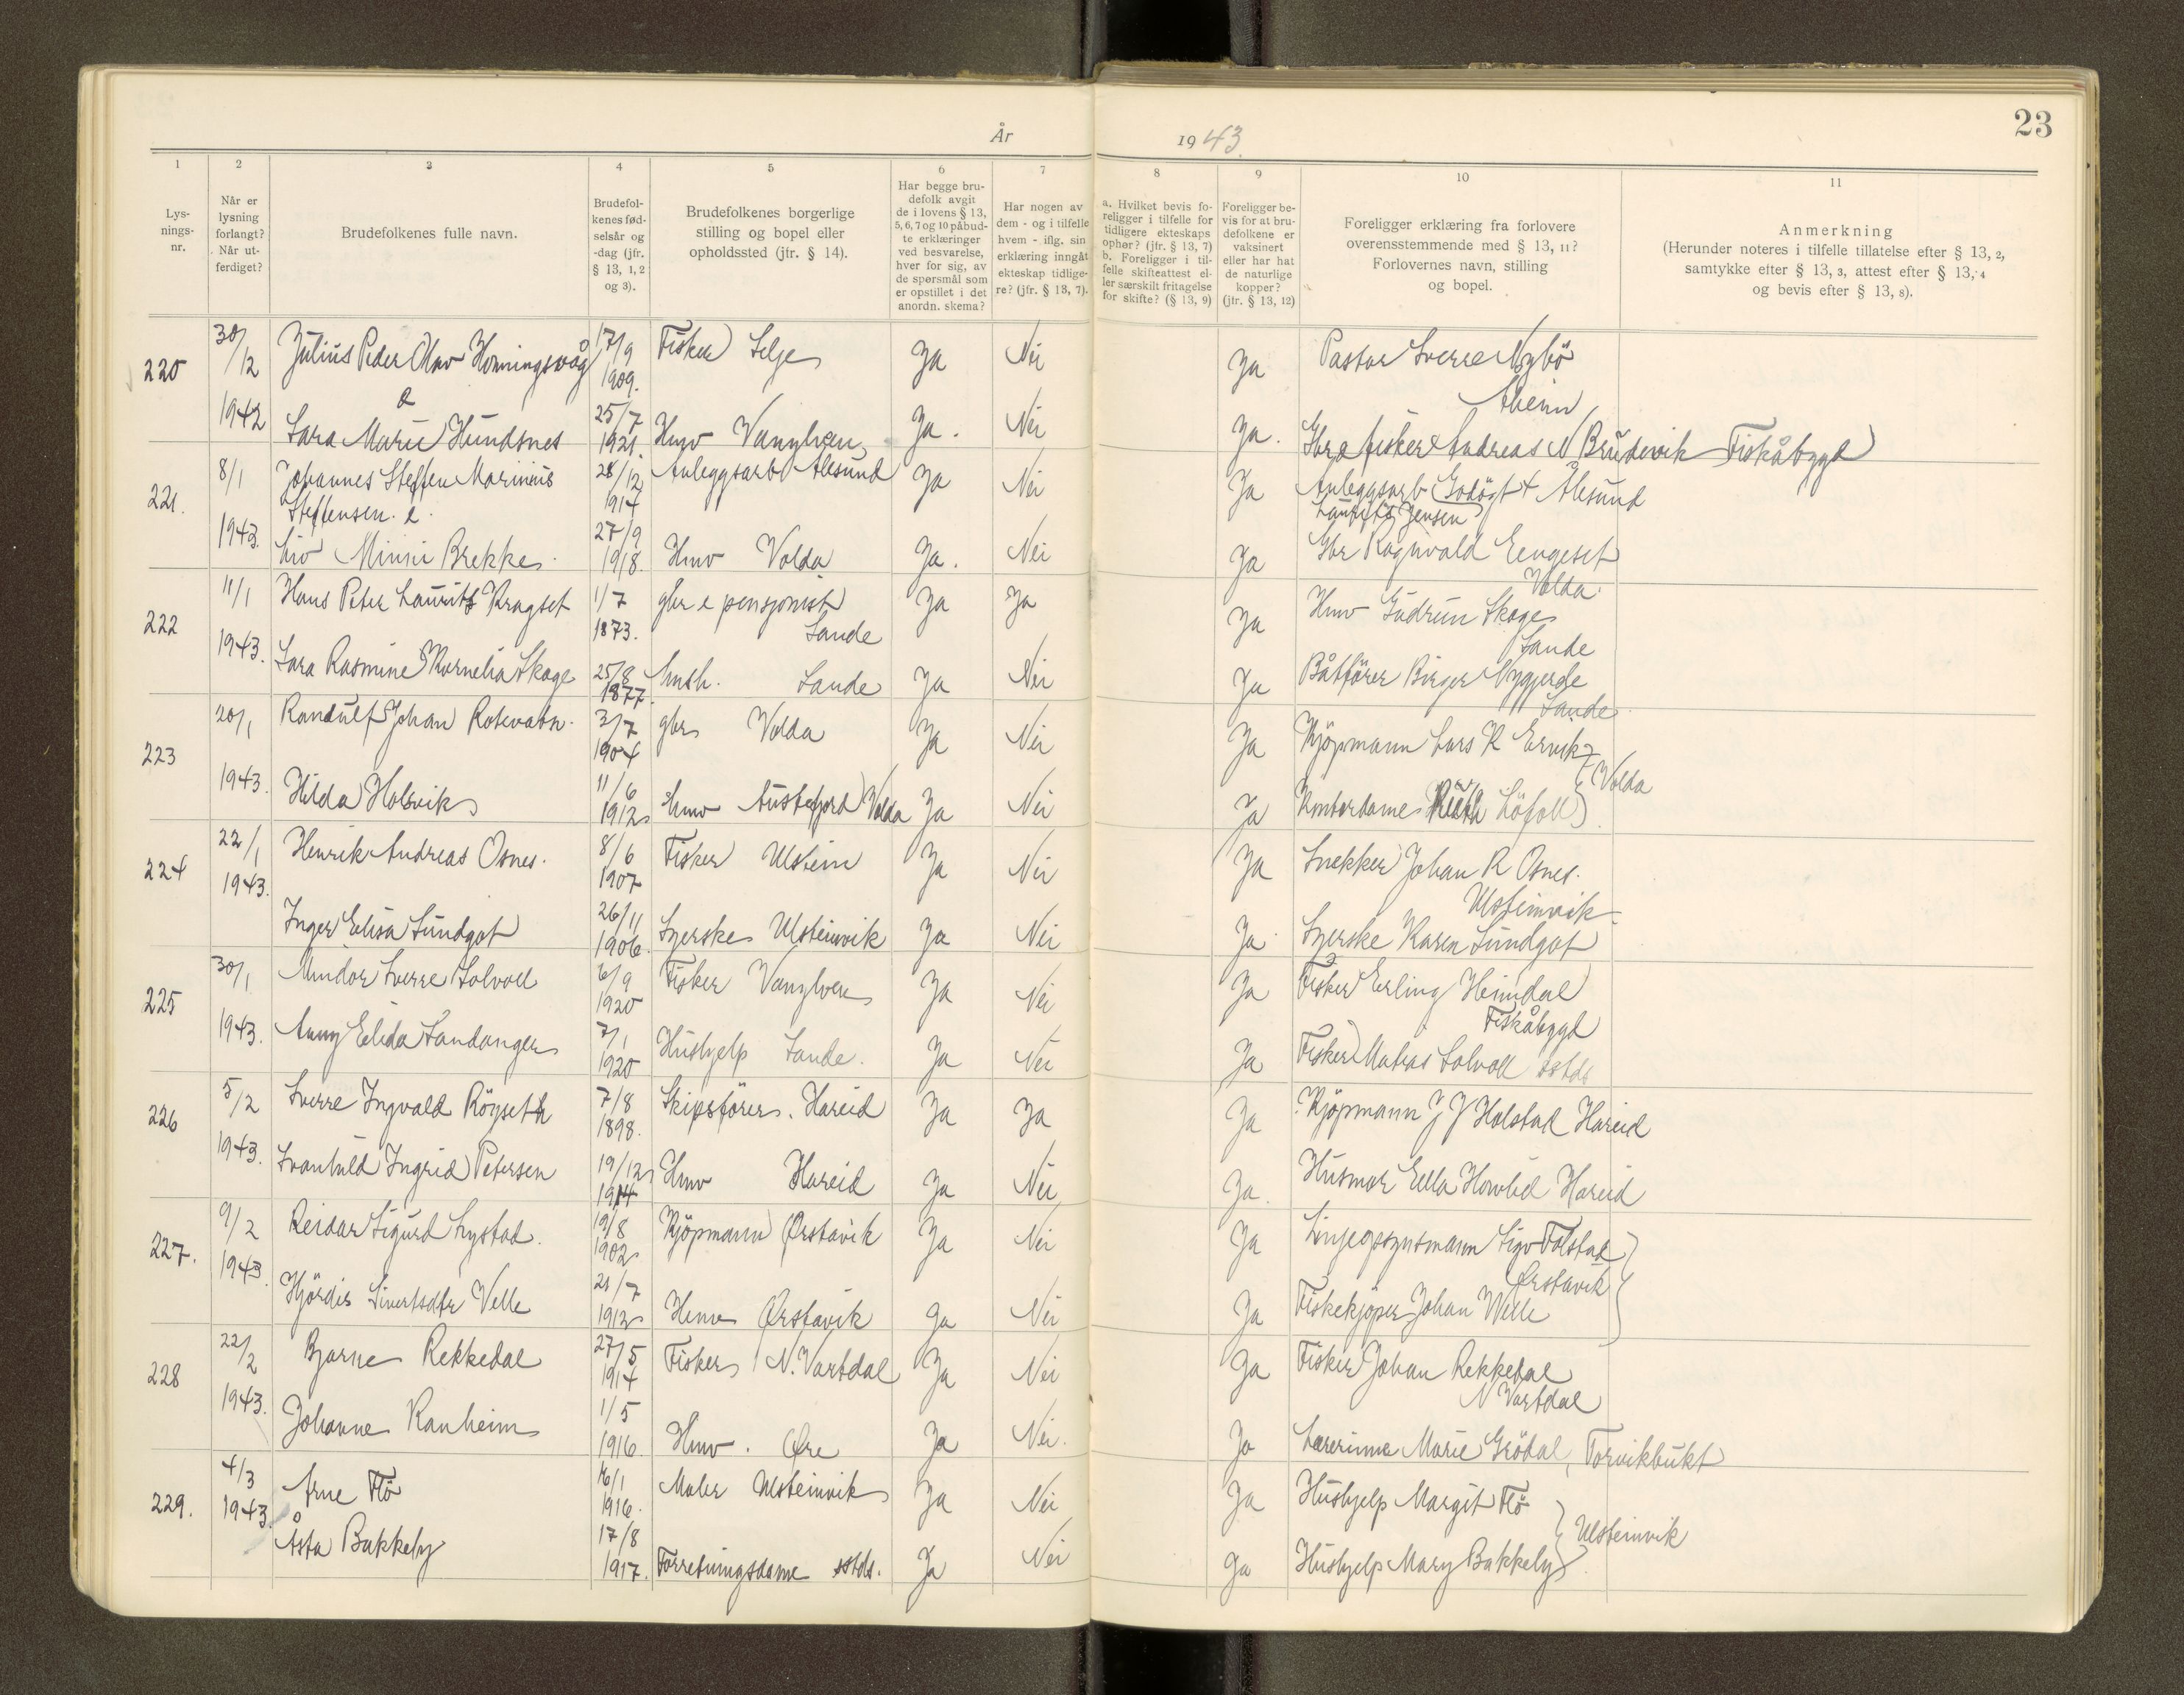 År 1943
23
1 2 3 4 5 6 7 8 9 10 11
Lys-
nings-
nr.
Når er
lysning
forlangt?
Når ut-
ferdiget?
Brudefolkenes fulle navn.
Brudefol-
kenes fød-
selsår og
-dag (jfr.
§ 13, 1, 2
og 3).
Brudefolkenes borgerlige
stilling og bopel eller
opholdssted (jfr. § 14).
Har begge bru-
defolk avgit
de i lovens § 13,
5, 6, 7 og 10 påbud-
te erklæringer
ved besvarelse,
hver for sig, av
de spørsmål som
er opstillet i det
anordn. skema?
Har nogen av
dem - og i tilfelle
hvem - iflg. sin
erklæring inngåt
ekteskap tidlige-
re? (jfr. § 13, 7).
a. Hvilket bevis fo-
religger i tilfelle for
tidligere ekteskaps
ophør? (jfr. § 13, 7)
b. Foreligger i til-
felle skifteattest el-
ler særskilt fritagelse
for skifte? (§ 13, 9)
Foreligger be-
vis for at bru-
defolkene er
vaksinert
eller har hat
de naturlige
kopper?
(jfr. § 13, 12)
Foreligger erklæring fra forlovere
overensstemmende med § 13, 11?
Forlovernes navn, stilling
og bopel.
Anmerkning
(Herunder noteres i tilfelle tillatelse efter § 13, 2,
samtykke efter § 13, 3, attest efter § 13, 4
og bevis efter § 13, 8).
220 30/12 1942 Julius Peder Olav Honningsvåg 17/9 1909. Fisker Selje Ja Nei Ja Pastor Sverre Nybö
Åheim
Lara Marie Hundsnes 25/7 1921. Hmv Vanylven Ja. Nei Ja. Gbr & fisker Andreas N Brudevik Fiskåbygd
221. 8/1 1943. Johannes Steffen Marinius
Steffensen. 28/12 1914 Anleggsarb Ålesund Ja Nei Ja Anleggsarb Ålesund
Laurits Jensen
Liv Minni Brekke. 27/9 1918. Hmv Volda Ja. Nei Ja Gbr Ragnvald Eengeset
Volda.
222 11/1 1943. Hans Peter Laurits Kragset 1/7 1873. gbr & pensjonist
Sande Ja Ja Ja Hmv Gudrun Skoge
Sande
Lara Rasmine Kornelia Skoge 25/8 1877. Sande Ja Nei Ja Båtfører Birger Nygjerde
Sande.
223 20/1 1943. Randulf Johan Rotevatn. 3/7 1904 gbr Volda Ja Nei Ja Kjöpmann Lars R Ervik
Volda
Hilda Holsvik 11/6 1912 Hmv Austefjord Volda Ja Nei Ja Kontordame Ruth Löfoll
224 22/1 1943. Henrik Andreas Osnes. 8/6 1907 Fisker Ulstein Ja Nei Ja Snekker Johan R Osnes.
Ulsteinvik
Inger Elisa Sundgot 26/11 1906. Syerske Ulsteinvik Ja Nei Ja. Syerske Karen Sundgot
225 30/1 1943. Mindor Sverre Solvoll 6/9 1920 Fisker Vanylven Ja Nei Ja Fisker Erling Heimdal
Fiskåbygd
Anny Elida Sandanger 7/1 1920 Hushjelp Sande. Ja Nei Ja Fisker Matias Solvoll sstds
226 5/2 1943. Sverre Ingvald Röyseth 7/8 1898. Skipsförer. Hareid Ja Ja Ja Kjöpmann J J Holstad Hareid
Svanhild Ingrid Petersen 19/12 1914 Hmv Hareid Ja Nei Ja. Husmor Ella Hovlid Hareid
227. 9/2 1943. Reidar Sigurd Lystad. 19/8 1902 Kjöpmann Ørstavik Ja Nei Ja Linjeopsynsmann Sigv Folstad
Ørstavik
Hjördis Sivertsdtr Velle 21/7 1912 Hmv Ørstavik Ja Nei Ja Fiskekjøper Johan Welle
228 22/2 1943. Bjarne Rekkedal 27/5 1914 Fisker N. Vartdal Ja Nei Ja Fisker Johan Rekkedal
N Vartdal
Johanne Ranheim 1/5 1916. Hmv. Øre Ja Nei. Ja Lærerinne Marie Grödal, Torvikbukt
229. 4/3 1943. Arne Flö 16/1 1916. Maler Ulsteinvik Ja Nei Ja Hushjelp Margit Flö
Ulsteinvik
Åsta Bakkeby 17/8 1917. Forretningsdame sstds. Ja Nei Ja Hushjelp Mary Bakkeby